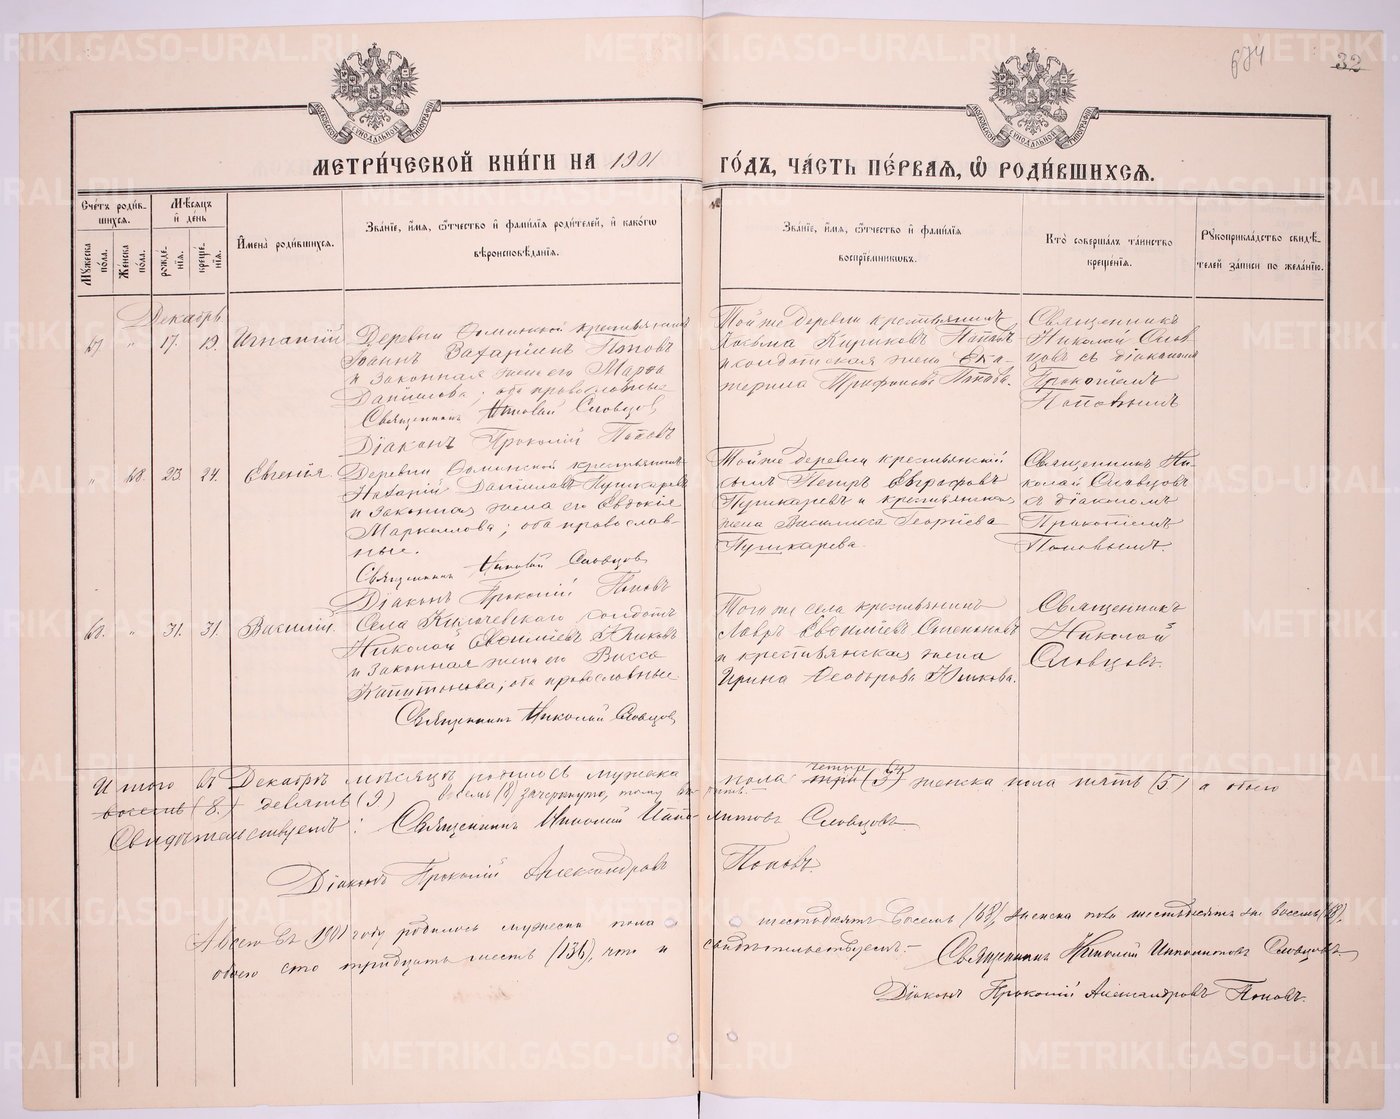 674
32
МОСКОВСКОЙ СѴНОДАЛЬНОЙ ТИПОГРАФІИ
МОСКОВСКОЙ СѴНОДАЛЬНОЙ ТИПОГРАФІИ
МЕТРИ́ЧЕСКОЙ КНИ́ГИ НА 1901 ГО́ДЪ, ЧА́СТЬ ПЕ́РВАЯ, Ѡ РОДИ́ВШИХСЯ.
Счетъ родившихся.
Мужеска пола.
Женска пола.
Мѣсяцъ и день
рожденія.
крещенія.
Имена родившихся.
Званіе, имя, отчество и фамилія родителей, и какого
вѣроисповѣданія.
Званіе, имя, отчество и фамилія
воспріемниковъ.
Кто совершалъ таинство
крещенія.
Рукоприкладство свидѣтелей записи по желанію.
Декабрь.
67 " 17. 19. Игнатій
Деревни Ѳоминской крестьянинъ
Іоаннъ Захаріинъ Поповъ
и законная жена его Марѳа
Даніилова; оба православные
Священникъ Николай Словцов
Діаконъ Прокопій Поповъ
Той же деревни крестьянинъ
Козьма Кириковъ Поповъ
и солдатская жена Ека-
терина Трифонова Попова.
Священникъ
Николай Слов
цовъ съ діакономъ
Прокопіемъ
Поповымъ
" 68. 23. 24. Евгенія.
Деревни Ѳоминской крестьянинъ
Назарій Даніиловъ Пушкаревъ
и законная жена его Евдокія
Маркеллова; оба православ-
ные.
Священникъ Николай Словцов
Діаконъ Прокопій Поповъ
Той же деревни крестьянскій
сынъ Петръ Евграфовъ
Пушкаревъ и крестьянская
жена Василиса Георгіева
Пушкарева.
Священникъ Ни-
колай Словцовъ
съ діакономъ
Прокопіемъ
Поповымъ.
68. " 31. 31. Василій.
Села Килачевскаго солдатъ
Николай Евѳиміевъ
и законная жена его Васса
Капитонова; оба православные
Священникъ Николай Словцов
Того же села крестьянинъ
Лавръ Евѳиміевъ
и крестьянская жена
Ирина Ѳеодорова
Священникъ
Николай
Словцовъ.
Итого въ Декабрѣ мѣсяцѣ родилось мужеска пола три (3) четыре (4) женска пола пять (5) а обоего
восемь (8.) девять (9) восемь (8) зачеркнуто, тому
Свидѣтельствуемъ: Священникъ Николай Ипполитовъ Словцовъ
Діаконъ Прокопій Александровъ Поповъ.
А всего въ 1901 году родилось мужеска пола шестьдесятъ восемь (68), женска пола шестьдесятъ же восемь (68),
обоего сто тридцать шесть (136), что и свидѣтельствуемъ:- Священникъ Николай Ипполитовъ Словцовъ
Діаконъ Прокопій Александровъ Поповъ.
METRIKI.GASO-URAL.RU